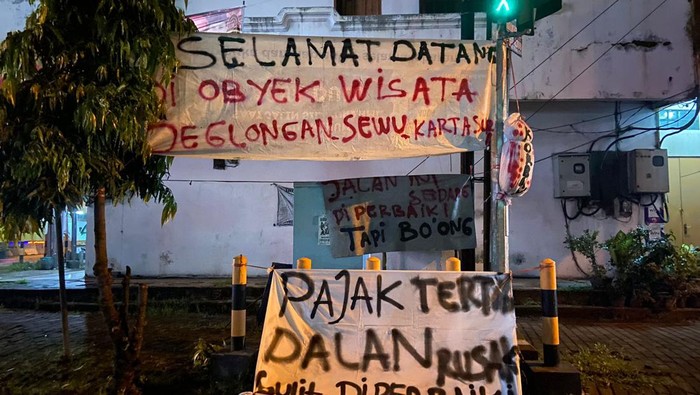 SELAMAT DATANG
DI OBYEK WISATA
DEGLONGAN SEWU KARTASU
JALAN INI
SEDANG
DIPERBAIKI
TAPI BO'ONG
PAJAK TERTI
DALAN RUSAK
SULIT DIPERBAIKI